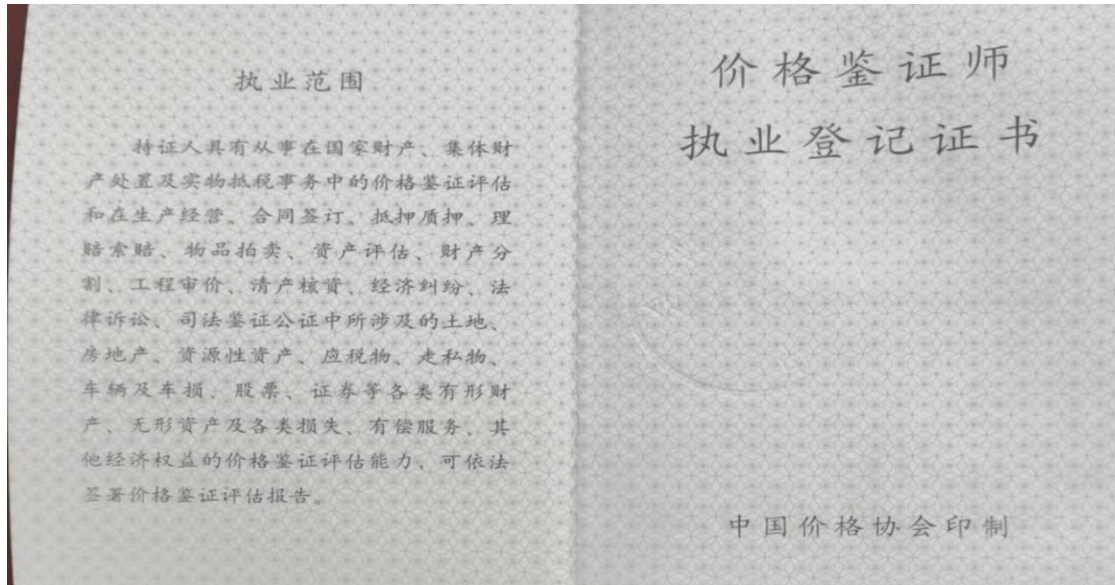 执业范围
持证人具有从事在国家财产、集体财
产处置及实物抵税事务中的价格鉴证评估
和在生产经营、合同签订、抵押质押、理
赔索赔、物品拍卖、资产评估、财产分
割、工程审价、清产核资、经济纠纷、法
律诉讼、司法鉴证公证中所涉及的土地、
房地产、资源性资产、应税物、走私物、
车辆及车损、股票、证券等各类有形财
产、无形资产及各类损失、有偿服务、其
他经济权益的价格鉴证评估能力、可依法
签署价格鉴证评估报告。
价格鉴证师
执业登记证书
中国价格协会印制